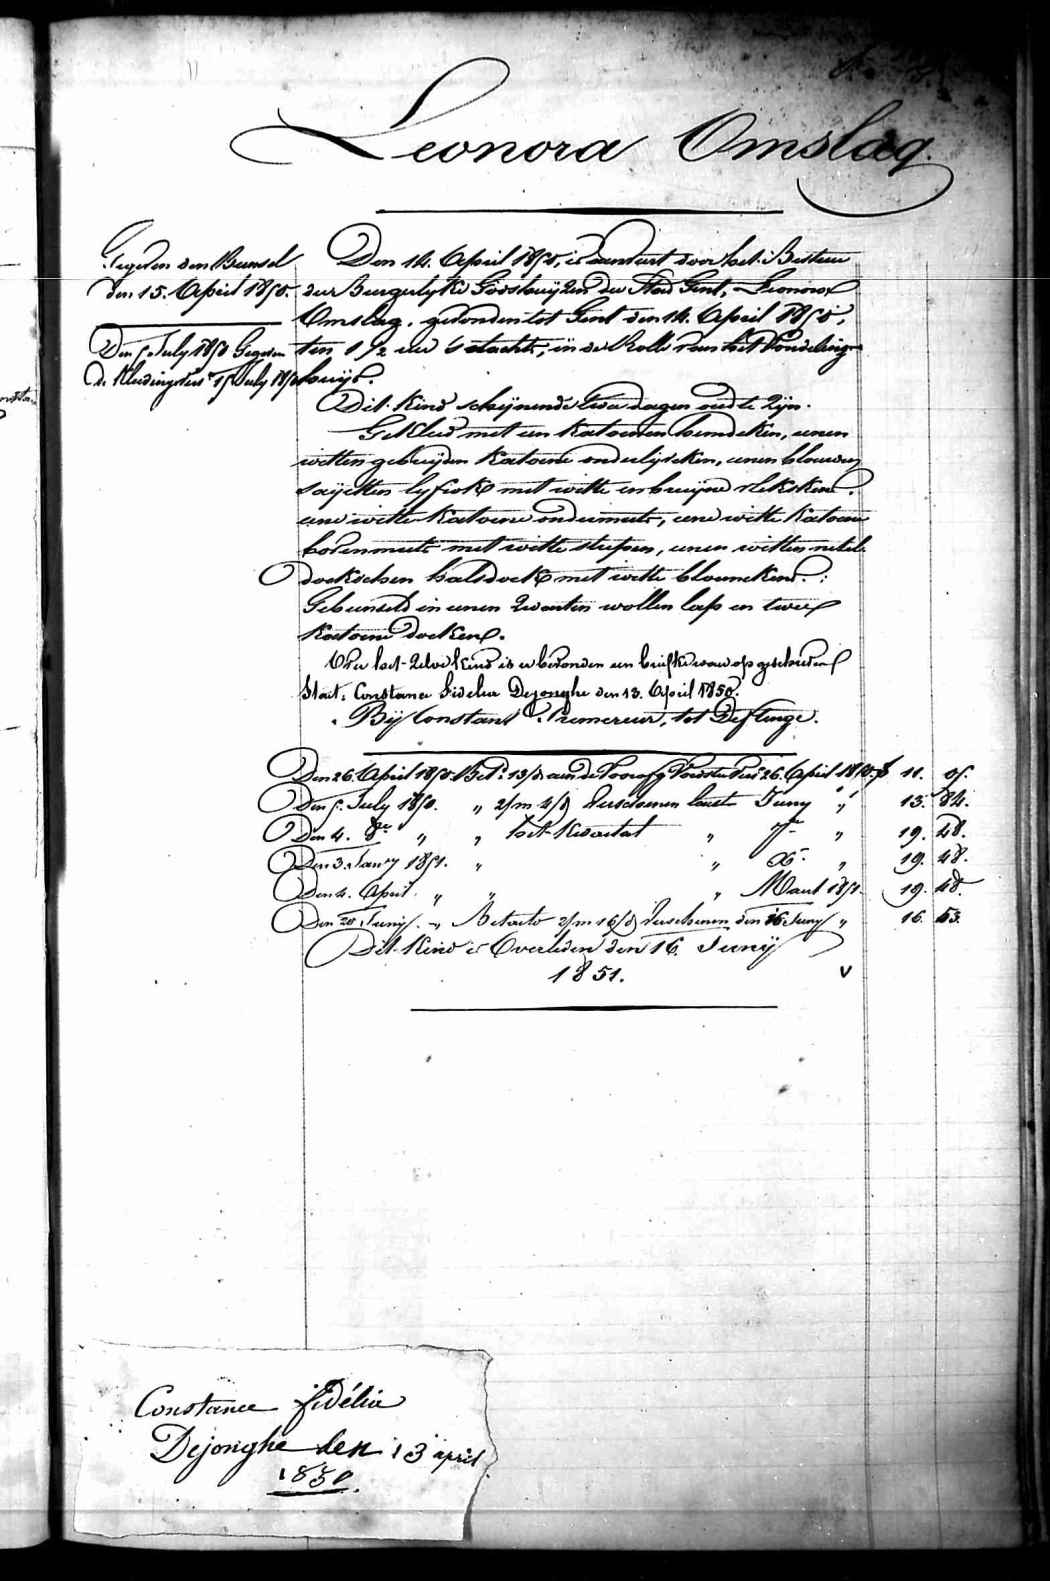 Leonora Omslag.
Gegeven den Bunsel
den 15. April 1850.
Den 5. July 1850 Gegeven
de Kledingstuks 1 July 1850
Den 14. April 1850, is aenvaert door het Bestier
der Burgerlyke Godshuyzen der Stad Gent, Leonora
Omslag, gevonden tot Gent den 14. April 1850,
ten 1 1/2 ure 's nachts, in de Rolle van het Vondeling
huys.
Dit Kind schynende twee dagen oud te Zyn.
Gekleed met een katoenen hemdeken, eenen
witten gebreyden katoene onderlyfseken, eenen blouwen
sayetten lyfrok met witte en bruyne vlekskens.
eene witte katoene ondermuts, eene witte katoene
bovenmuts met witte strepen, eenen witten netel
doekschen halsdoek met witte blommekens.
Gebunseld in eenen Zwarten wollen lap en twee
katoene doeken.
Over het Zelve kind is er bevonden een briefke waer op geschreven
staet: Constance Fidelia Dejonghe den 13. April 1850.
By Constant Premereur, tot Deftinge.
Den 26. April 1850. Bet. 13/ aen de Voorsz Voedster 26. April 1850. f 11. 05.
Den 5. July 1850. " 2/m 4/d Verschenen laest Juny " " 13. 84.
Den 4. 8re " " het Kwartael " 7re " 19. 48.
Den 3. Jany 1851. " " Xr. " 19. 48.
Den 4. April " " " Maert 1851. 19. 48.
Den 20 Juny " Betaelt 2/m 16/d Verschenen den 16. Juny " 16. 53.
Dit Kind is Overleden den 16. Juny
1851. v
Constance fidélia
Dejonghe den 13 april
1850.